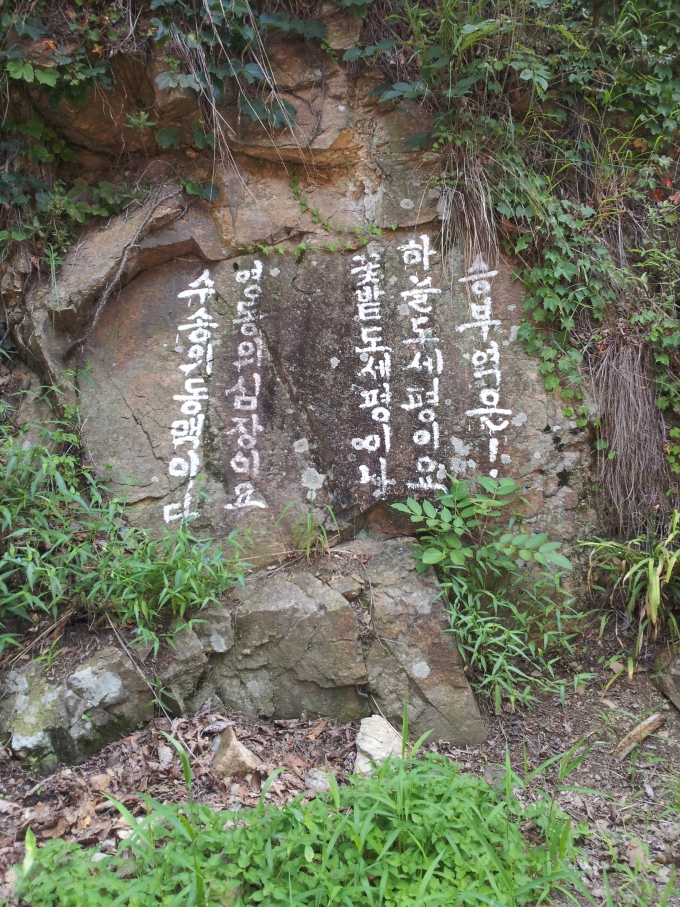 승부역은!
하늘도세평이요
꽃밭도세평이나
영동의심장이요
수송의동맥이다